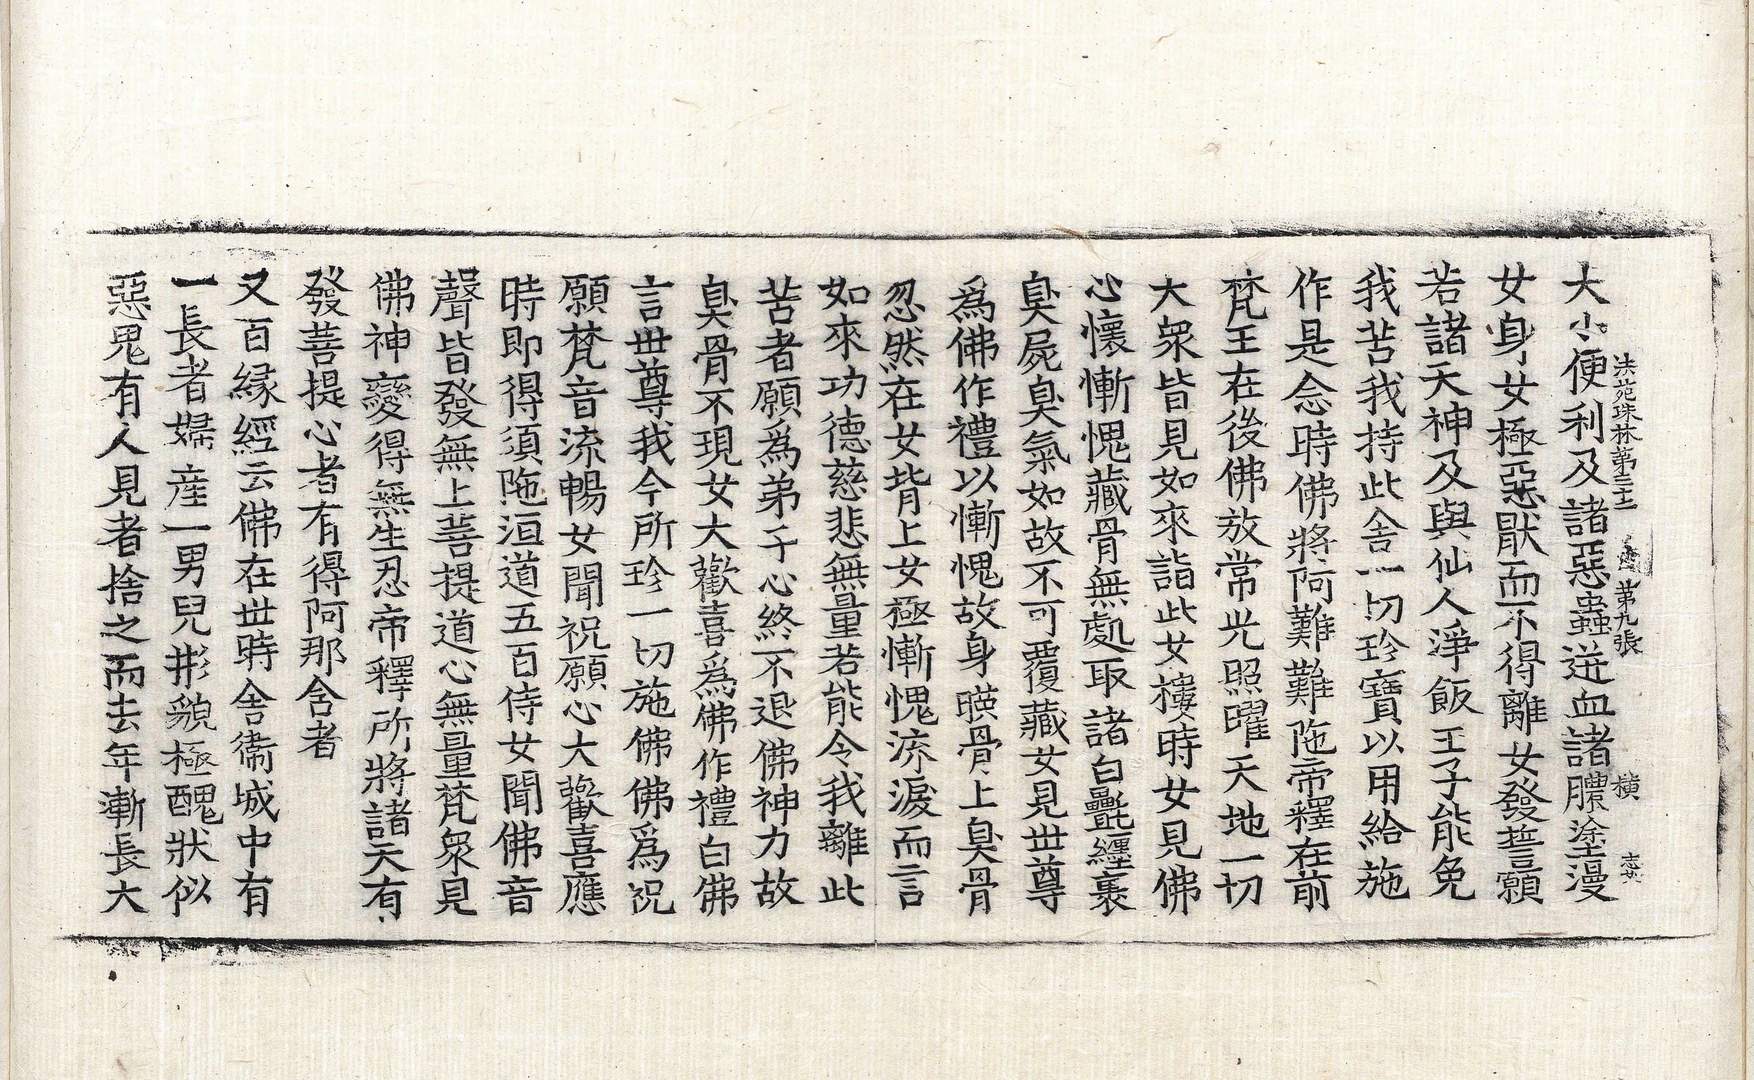 大小便利及諸惡蟲迸血諸膿塗漫
法苑珠林第二十二 第九張 橫
女身女極惡厭而不得離女發誓願
若諸天神及與仙人淨飯王子能免
我苦我持此舍一切珍寶以用給施
作是念時佛將阿難難陁帝釋在前
梵王在後佛放常光照曜天地一切
大衆皆見如來詣此女樓時女見佛
心懷慚愧藏骨無處取諸白㲲纏裹
臭屍臭氣如故不可覆藏女見世尊
爲佛作禮以慚愧故身暎骨上臭骨
忽然在女背上女極慚愧流淚而言
如來功德慈悲無量若能令我離此
苦者願爲弟子心終不退佛神力故
臭骨不現女大歡喜爲佛作禮白佛
言世尊我今所珍一切施佛佛爲祝
願梵音流暢女聞祝願心大歡喜應
時即得須陁洹道五百侍女聞佛音
聲皆發無上菩提道心無量梵衆見
佛神變得無生忍帝釋所將諸天有
發菩提心者有得阿那舍者
又百緣經云佛在世時舍衞城中有
一長者婦產一男兒形貌極醜狀似
惡鬼有人見者捨之而去年漸長大